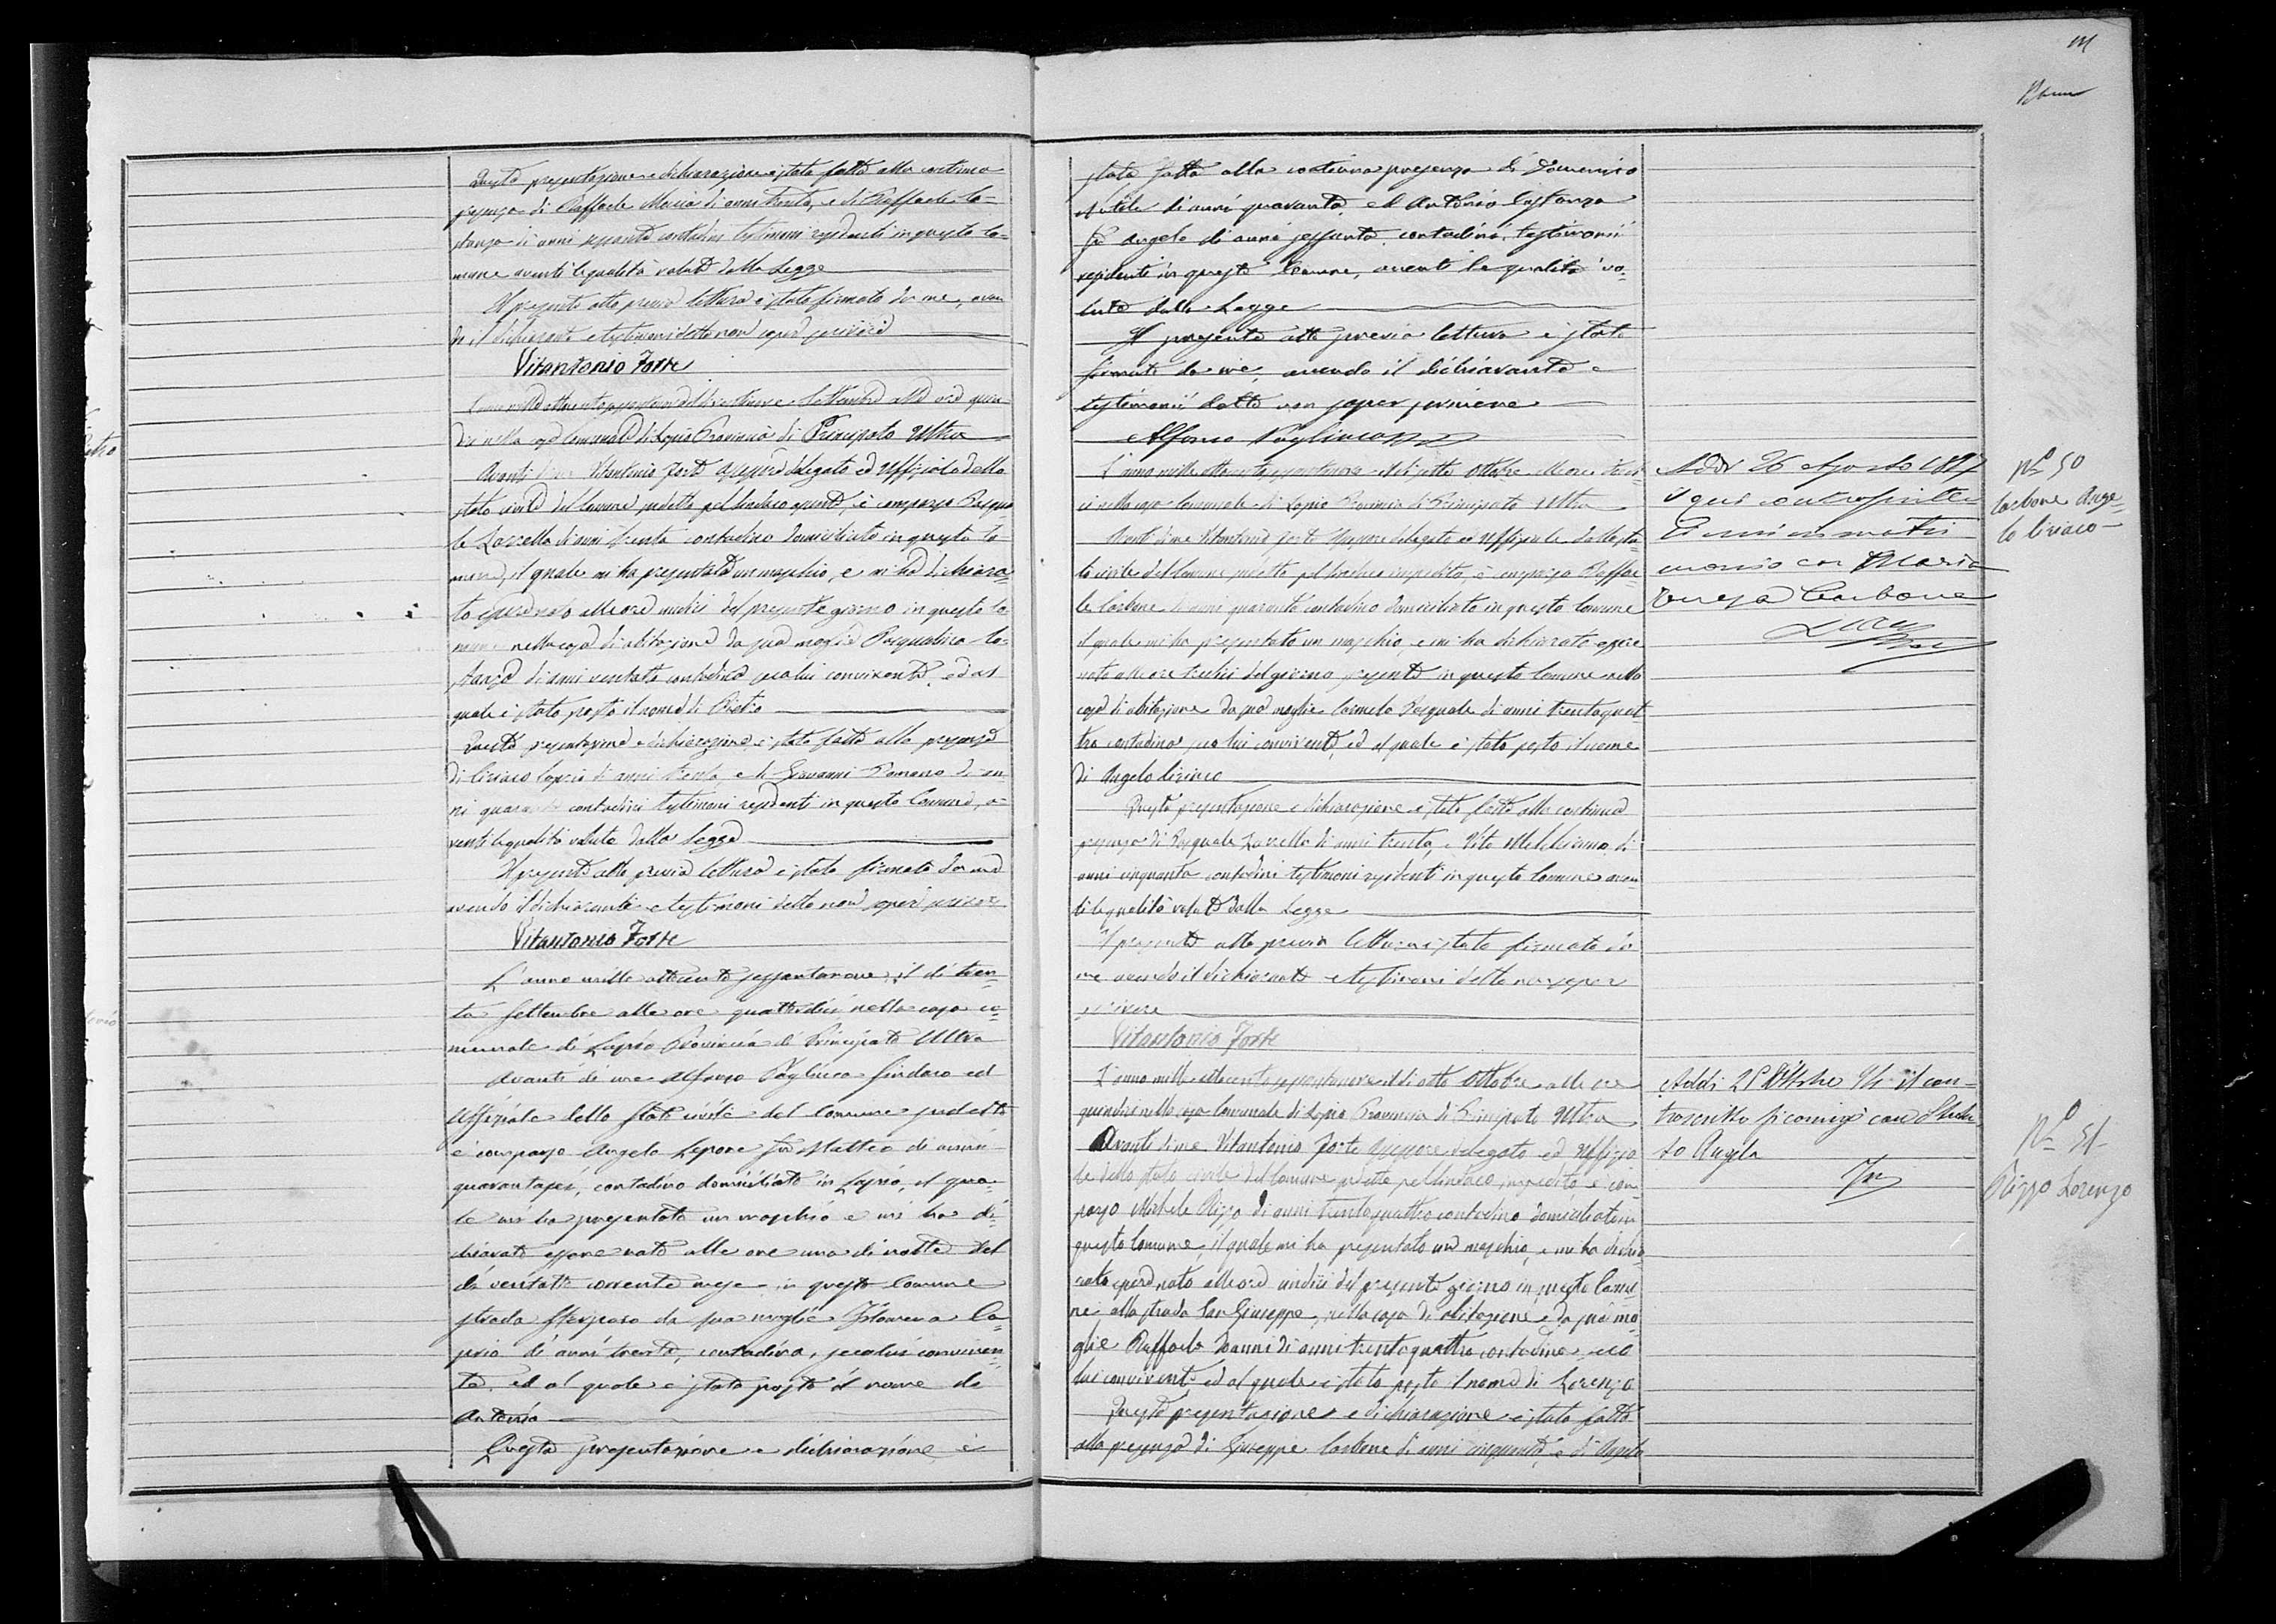 Questa presentazione e dichiarazione è stata fatta alla continua
presenza di Raffaele Maria di anni trenta, e di Raffaele Co=
stanza di anni sessanta contadini testimoni residenti in questo Co=
mune aventi le qualità volute dalla Legge
Il presente atto previa lettura è stato firmato da me, aven
do il dichiarante e testimoni detto non saper scrivere
Vitantonio Forte
L'anno mille ottocento sessantanove Settembre alle ore quin
dici nella casa Comunale di Lapio Provincia di Principato Ultra
Avanti di me Vitantonio Forte assessore delegato ed Uffiziale dello
stato civile del Comune suddetto pel Sindaco assente, è comparso Pasqua
le Zarrella di anni trenta contadino domiciliato in questo Co
mune, il quale mi ha presentato un maschio, e mi ha dichiara=
to essere nato alle ore undici del presente giorno in questo Co
mune nella casa di abitazione da sua moglie Pasqualina Co=
stanza di anni ventotto contadina seco lui convivente, ed al
quale è stato posto il nome di Pietro
Questa presentazione e dichiarazione è stata fatta alla presenza
di Ciriaco Caprio di anni trenta, e di Giovanni Romano di an=
ni quaranta contadini testimoni residenti in questo Comune, a=
venti le qualità volute dalla Legge
Il presente atto previa lettura è stato firmato da me
avendo il dichiarante e testimoni detto non saper scrivere
Vitantonio Forte
L'anno mille ottocento sessantanove, il dì tren=
ta Settembre alle ore quattordici nella casa co=
munale di Lapio Provincia di Principato Ultra
Avanti di me Alfonso Pagliuca Sindaco ed
Uffiziale dello stato civile del Comune suddetto
è comparso Angelo Lepore fu Matteo di anni
quarantasei, contadino domiciliato in Lapio, il qua=
le mi ha presentato un maschio e mi ha di=
chiarato essere nato alle ore una di notte del
dì ventotto corrente mese in questo Comune
strada da sua moglie Filomena Ca=
prio di anni trenta, contadina, seco lui conviven=
te, ed al quale è stato posto il nome di
Antonio
Questa presentazione e dichiarazione è
stata fatta alla continua presenza di Domenico
di anni quaranta, ed Antonio Costanza
fu Angelo di anni sessanta, contadini, testimonii
residenti in questo Comune, aventi le qualità vo=
lute dalla Legge
Il presente atto previa lettura è stato
firmato da me, avendo il dichiarante e
testimonii detto non saper scrivere
Alfonso Pagliuca
L'anno mille ottocento sessantanove il dì sette Ottobre alle ore
nella casa Comunale di Lapio Provincia di Principato Ultra
Avanti di me Vitantonio Forte Assessore delegato ed Uffiziale dello sta=
to civile del Comune suddetto pel Sindaco impedito, è comparso Raffae
le Carbone di anni quaranta contadino domiciliato in questo Comune
il quale mi ha presentato un maschio, e mi ha dichiarato essere
nato alle ore tredici del giorno presente in questo Comune nella
casa di abitazione da sua moglie Carmela Pasquale di anni trentaquat
tro contadina seco lui convivente, ed al quale è stato posto il nome
di Angelo Ciriaco
Questa presentazione e dichiarazione è stata fatta alla continua
presenza di Pasquale Zarrella di anni trenta, e Vito di
anni cinquanta contadini testimoni residenti in questo Comune aven
ti le qualità volute dalla Legge
Il presente atto previa lettura è stato firmato da
me avendo il dichiarante e testimoni detto non saper
scrivere
Vitantonio Forte
L'anno mille ottocento sessantanove il dì otto Ottobre alle ore
quindici nella casa Comunale di Lapio Provincia di Principato Ultra
Avanti di me Vitantonio Forte assessore delegato ed Uffizia
le dello stato civile del Comune suddetto pel Sindaco impedito è com
parso Michele Rizzo di anni trentaquattro contadino domiciliato in
questo Comune, il quale mi ha presentato un maschio, e mi ha dichia
rato essere nato alle ore undici del presente giorno in questo Comu=
ne alla strada San Giuseppe, nella casa di abitazione, e da sua mo=
glie Raffaela Ioanni di anni trentaquattro contadina seco
lui convivente ed al quale è stato posto il nome di Lorenzo
Questa presentazione e dichiarazione è stata fatta
alla presenza di Giuseppe Carbone di anni cinquanta, e di Angelo
Addì 26 Agosto 1897
il qui controscritto
si unì in matri
monio con Maria
Teresa Carbone
No 50
Carbone Ange=
lo Ciriaco
Addì 25 Ottobre 94 il con=
troscritto si coniugò con
to Angela
No 51
Rizzo Lorenzo